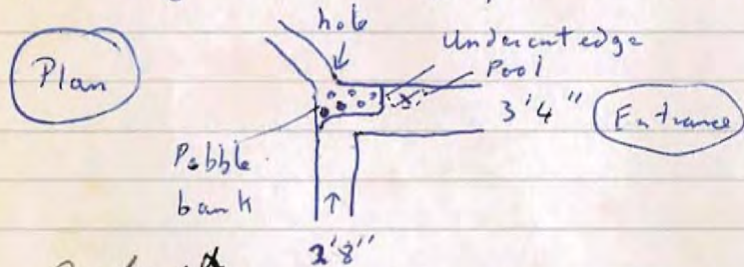 hole
Undercut edge
Plan
Pool
3'4"
Entrance
Pebble
bank
2'8"